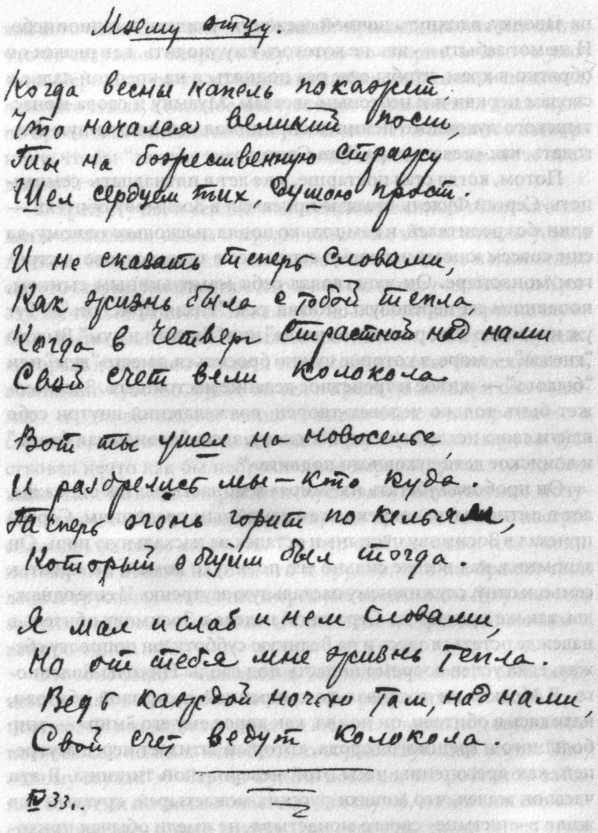 Моему отцу.
Когда весны капель покажет
Что начался великий пост,
Ты на божественную стражу
Шел сердцем тих, душою прост.
И не сказать теперь словами,
Как жизнь была с тобой тепла
Когда в четверг Страстной над нами
Свой счет вели колокола.
Вот ты ушел на новоселье,
И разбрелись мы – кто куда.
Теперь огонь горит по кельям,
Который общим был тогда
Я мал и слаб и нем словами,
Но от тебя мне жизнь тепла.
Ведь каждой ночью там, над нами,
Свой счет ведут колокола.
IV 33..